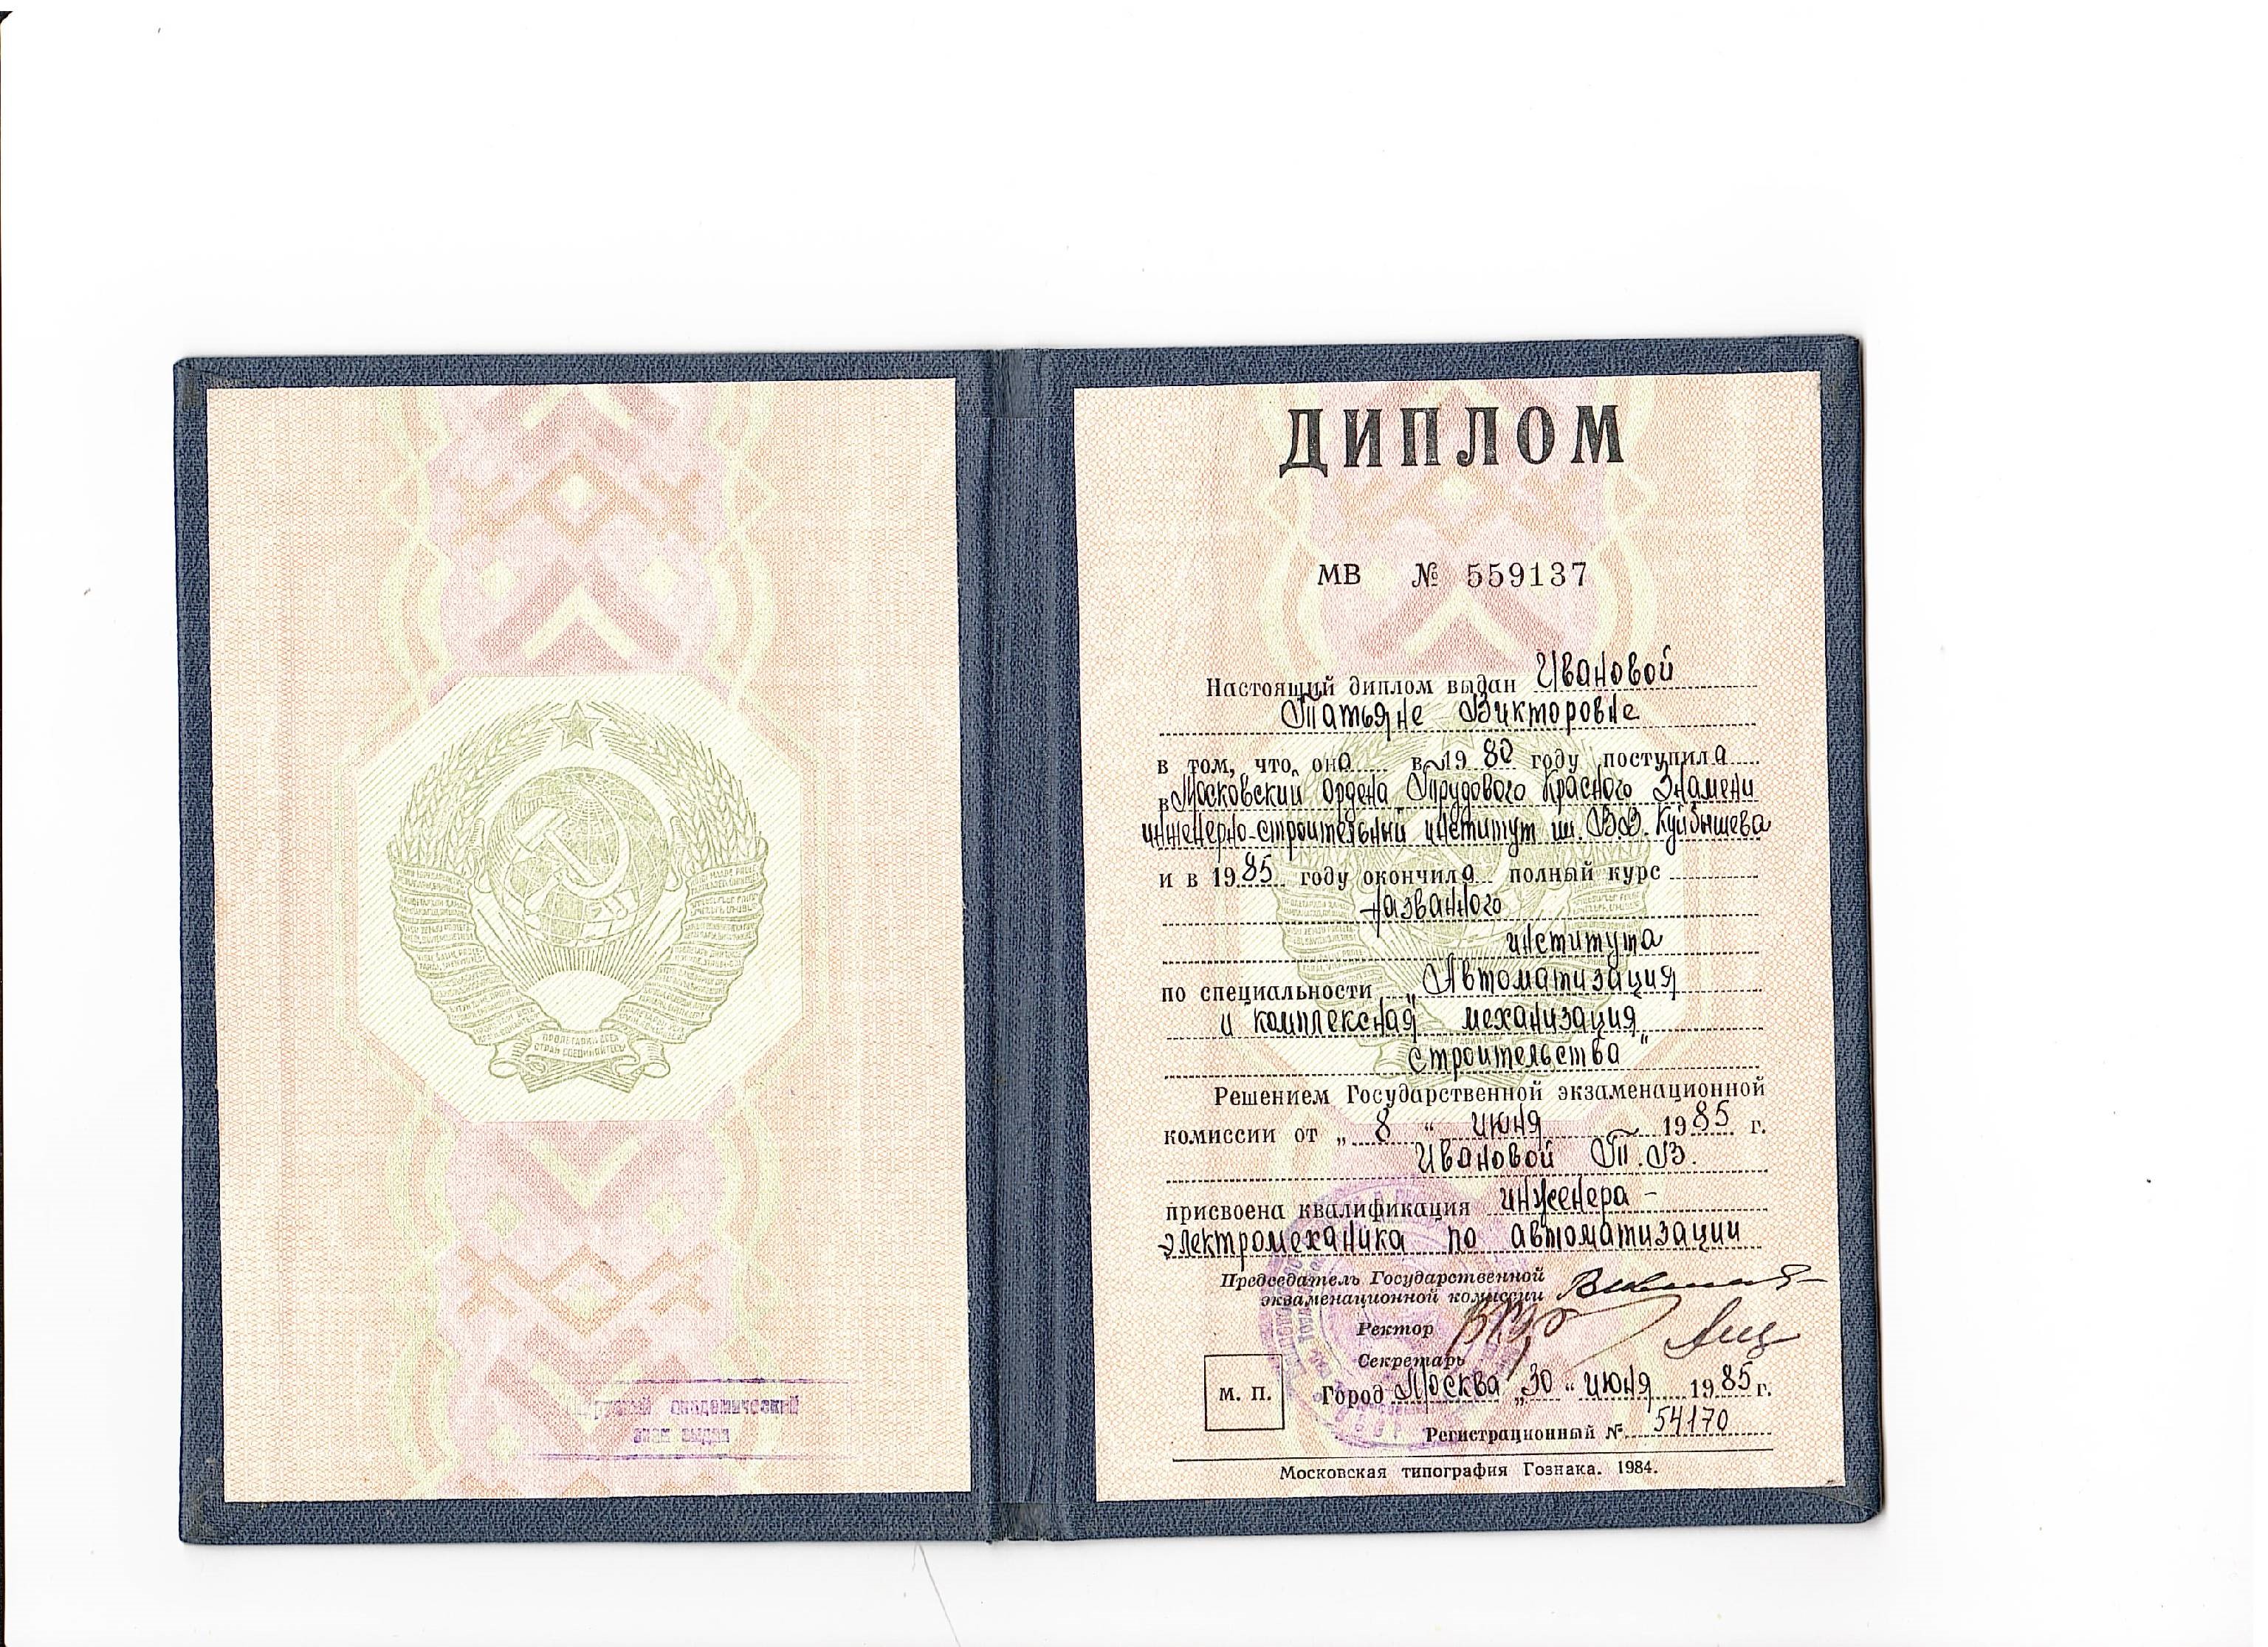 ПРОЛЕТАРИИ ВСЕХ
СТРАН СОЕДИНЯЙТЕСЬ
академический
знак выдан
ДИПЛОМ
МВ № 559137
Настоящий диплом выдан Ивановой
Татьяне Викторовне
в том, что она в 19 80 году поступила
в Московский ордена Трудового Красного Знамени
инженерно-строительный институт им. В.В. Куйбышева
и в 19 85 году окончила полный курс
названного
института
по специальности „Автоматизация
и комплексная механизация
строительства“
Решением Государственной экзаменационной
комиссии от „ 8 “ июня 19 85 г.
Ивановой Т.В.
присвоена квалификация инженера -
электромеханика по автоматизации
Председатель Государственной
экзаменационной комиссии
Ректор
Секретарь
м. п. Город Москва „ 30 “ июня 19 85 г.
Регистрационный № 54170
Московская типография Гознака. 1984.